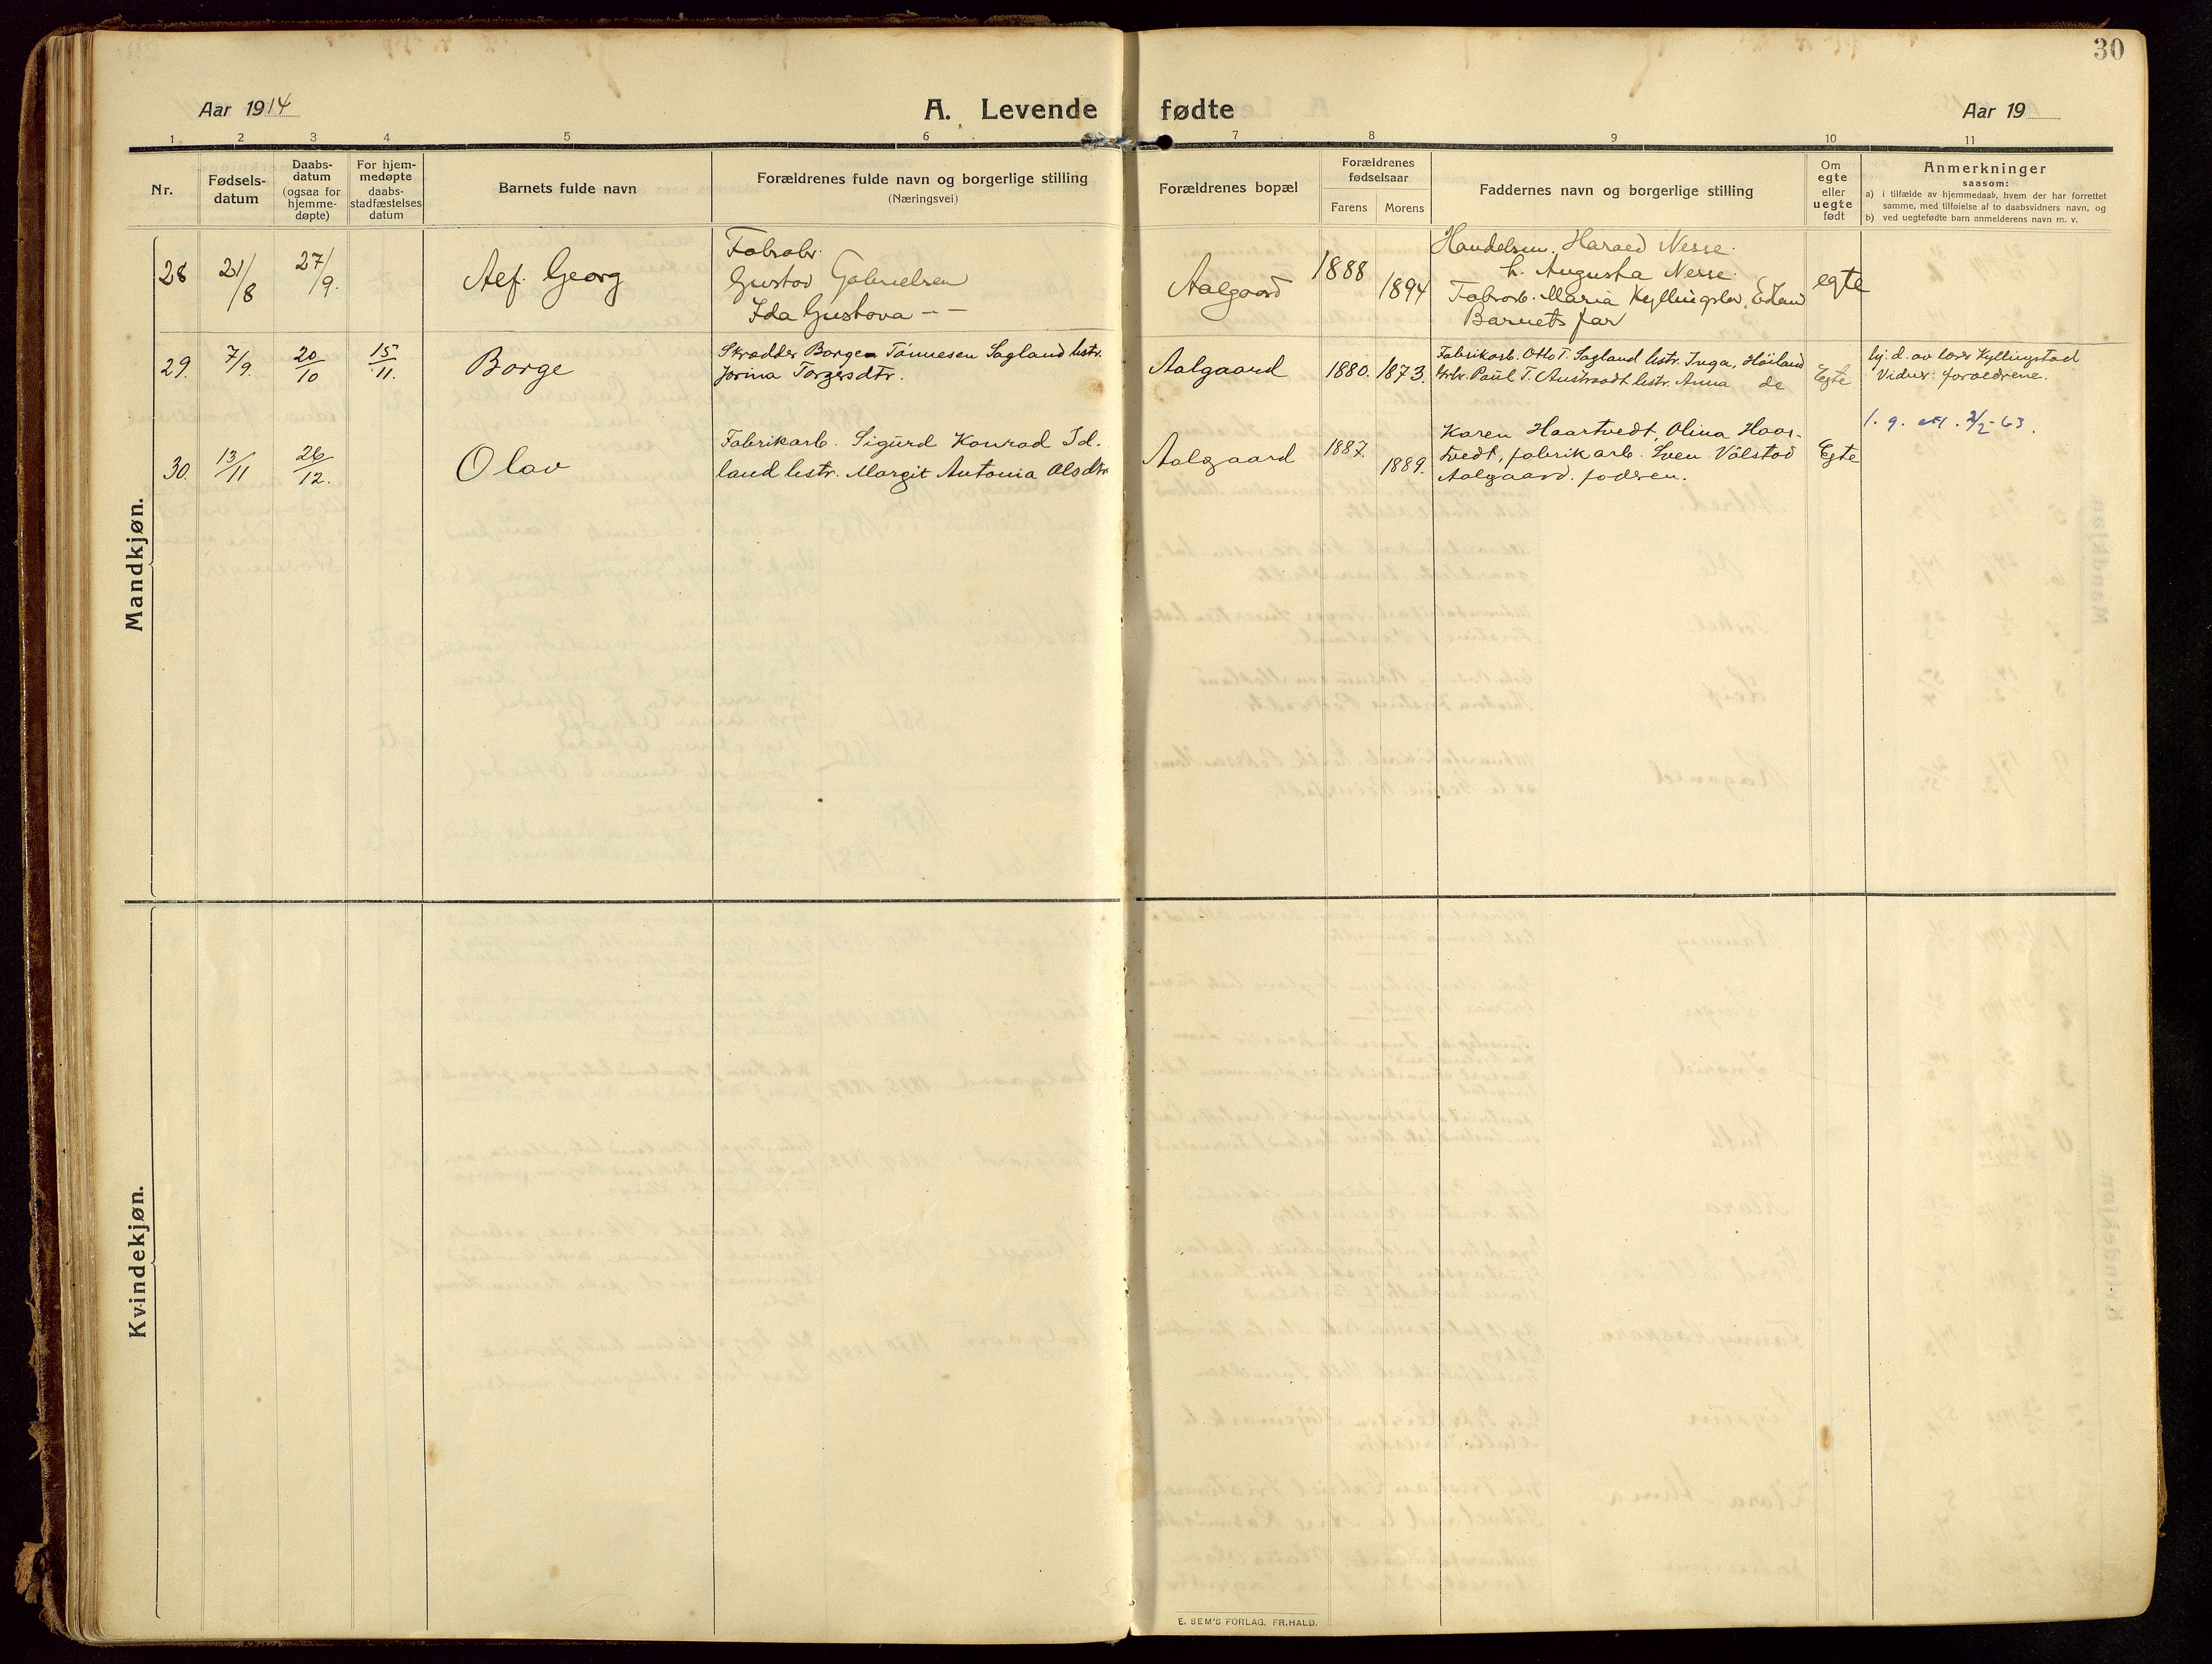 30
Aar 1914
A. Levende fødte
Aar 19
1 2 3 4 5 6 7 8 9 10 11
Nr.
Fødsels-
datum
Daabs-
datum
(ogsaa for
hjemme-
døpte)
For hjem-
medøpte
daabs-
stadfæstelses
datum
Barnets fulde navn
Forældrenes fulde navn og borgerlige stilling
(Næringsvei)
Forældrenes bopæl
Forældrenes
fødselsaar
Farens Morens
Faddernes navn og borgerlige stilling
Om
egte
eller
uegte
født
Anmerkninger
saasom:
a) i tilfælde av hjemmedaab, hvem der har forrettet
samme, med tilføielse af to daabsvidners navn, og
b) ved uegtefødte barn anmelderens navn m. v.
Mandkjøn.
28 21/8 27/9. Alf Georg
Fabrabr.
Gustav Gabrielsen
Ida Gustava – –
Aalgaard 1888 1894
Handelsm. Harald Nesse.
h. Augusta Nesse.
Fabrarb. Maria Kyllingsta,
Barnets far
egte
29. 7/9. 20/10 15/11. Borge
Skrædder Borge Tønnesen Sagland hstr.
Jorina Torgersdtr.
Aalgaard 1880. 1873.
Fabrikarb. Otto T. Sagland hstr. Inga, Høiland
Grbr. Paul T. Austraadt hstr. Anna do
Egte
hj. d. av lær Kyllingstad
Vidner: forældrene.
30. 13/11 26/12. Olav
Fabrikarb. Sigurd Konrad Id-
land hstr. Margit Antonia Olsdtr.
Aalgaard 1887. 1889.
Karen Haartvedt, Olina Haar-
tvedt, fabrikarb. Sven Vølstad
Aalgaard. faderen.
Egte
1. g. att. 2/2-63.
Kvindekjøn.
E. SEM'S FORLAG, FR.HALD.